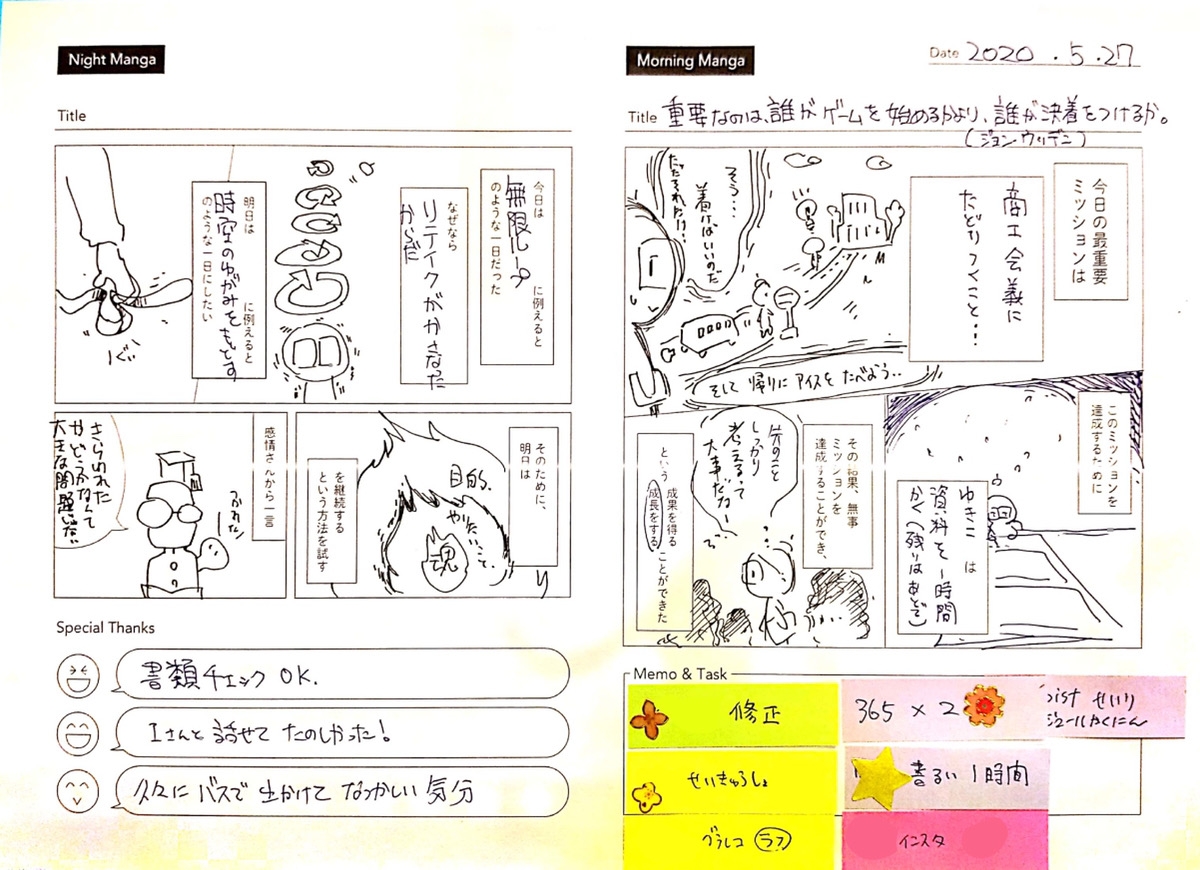 Night Manga
Title
今日は
無限ループ
に例えると
のような一日だった
なぜなら
リテイクがかさなった
からだ
明日は
時空のゆがみをもどす
に例えると
のような一日にしたい
ぐぃ
そのために、
明日は
目的、
やりたいこと、
魂
を継続する
という方法を試す
感情さんから一言
つかれた
さいられた
かどうかなんて
大きな問題じゃない
Special Thanks
書類チェック OK.
Iさんと話せて たのしかった!
久々に バスで 出かけて なつかしい 気分
Morning Manga
Date 2020.5.27
Title 重要なのは、誰がゲームを始めるかより、誰が決着をつけるか。
(ジョン・ウッデン)
今日の最重要
ミッションは
商工会議に
たどりつくこと…!
そう…
着けばいいのだ
たどりつければ!!
そして 帰りに アイスを たべよう…
このミッションを
達成するために
ゆきこ は
資料を1時間
かく(残りはあとで)
その結果、無事
ミッションを
達成することができ、
先のこと
しっかり
考えるって
大事だなー
という
成果を得る
成長をする
ことができた
Memo & Task
修正
365 × 2
list せいり
ジュールかくにん
せいきゅうしょ
書るい 1時間
グラレコ ラフ
インスタ